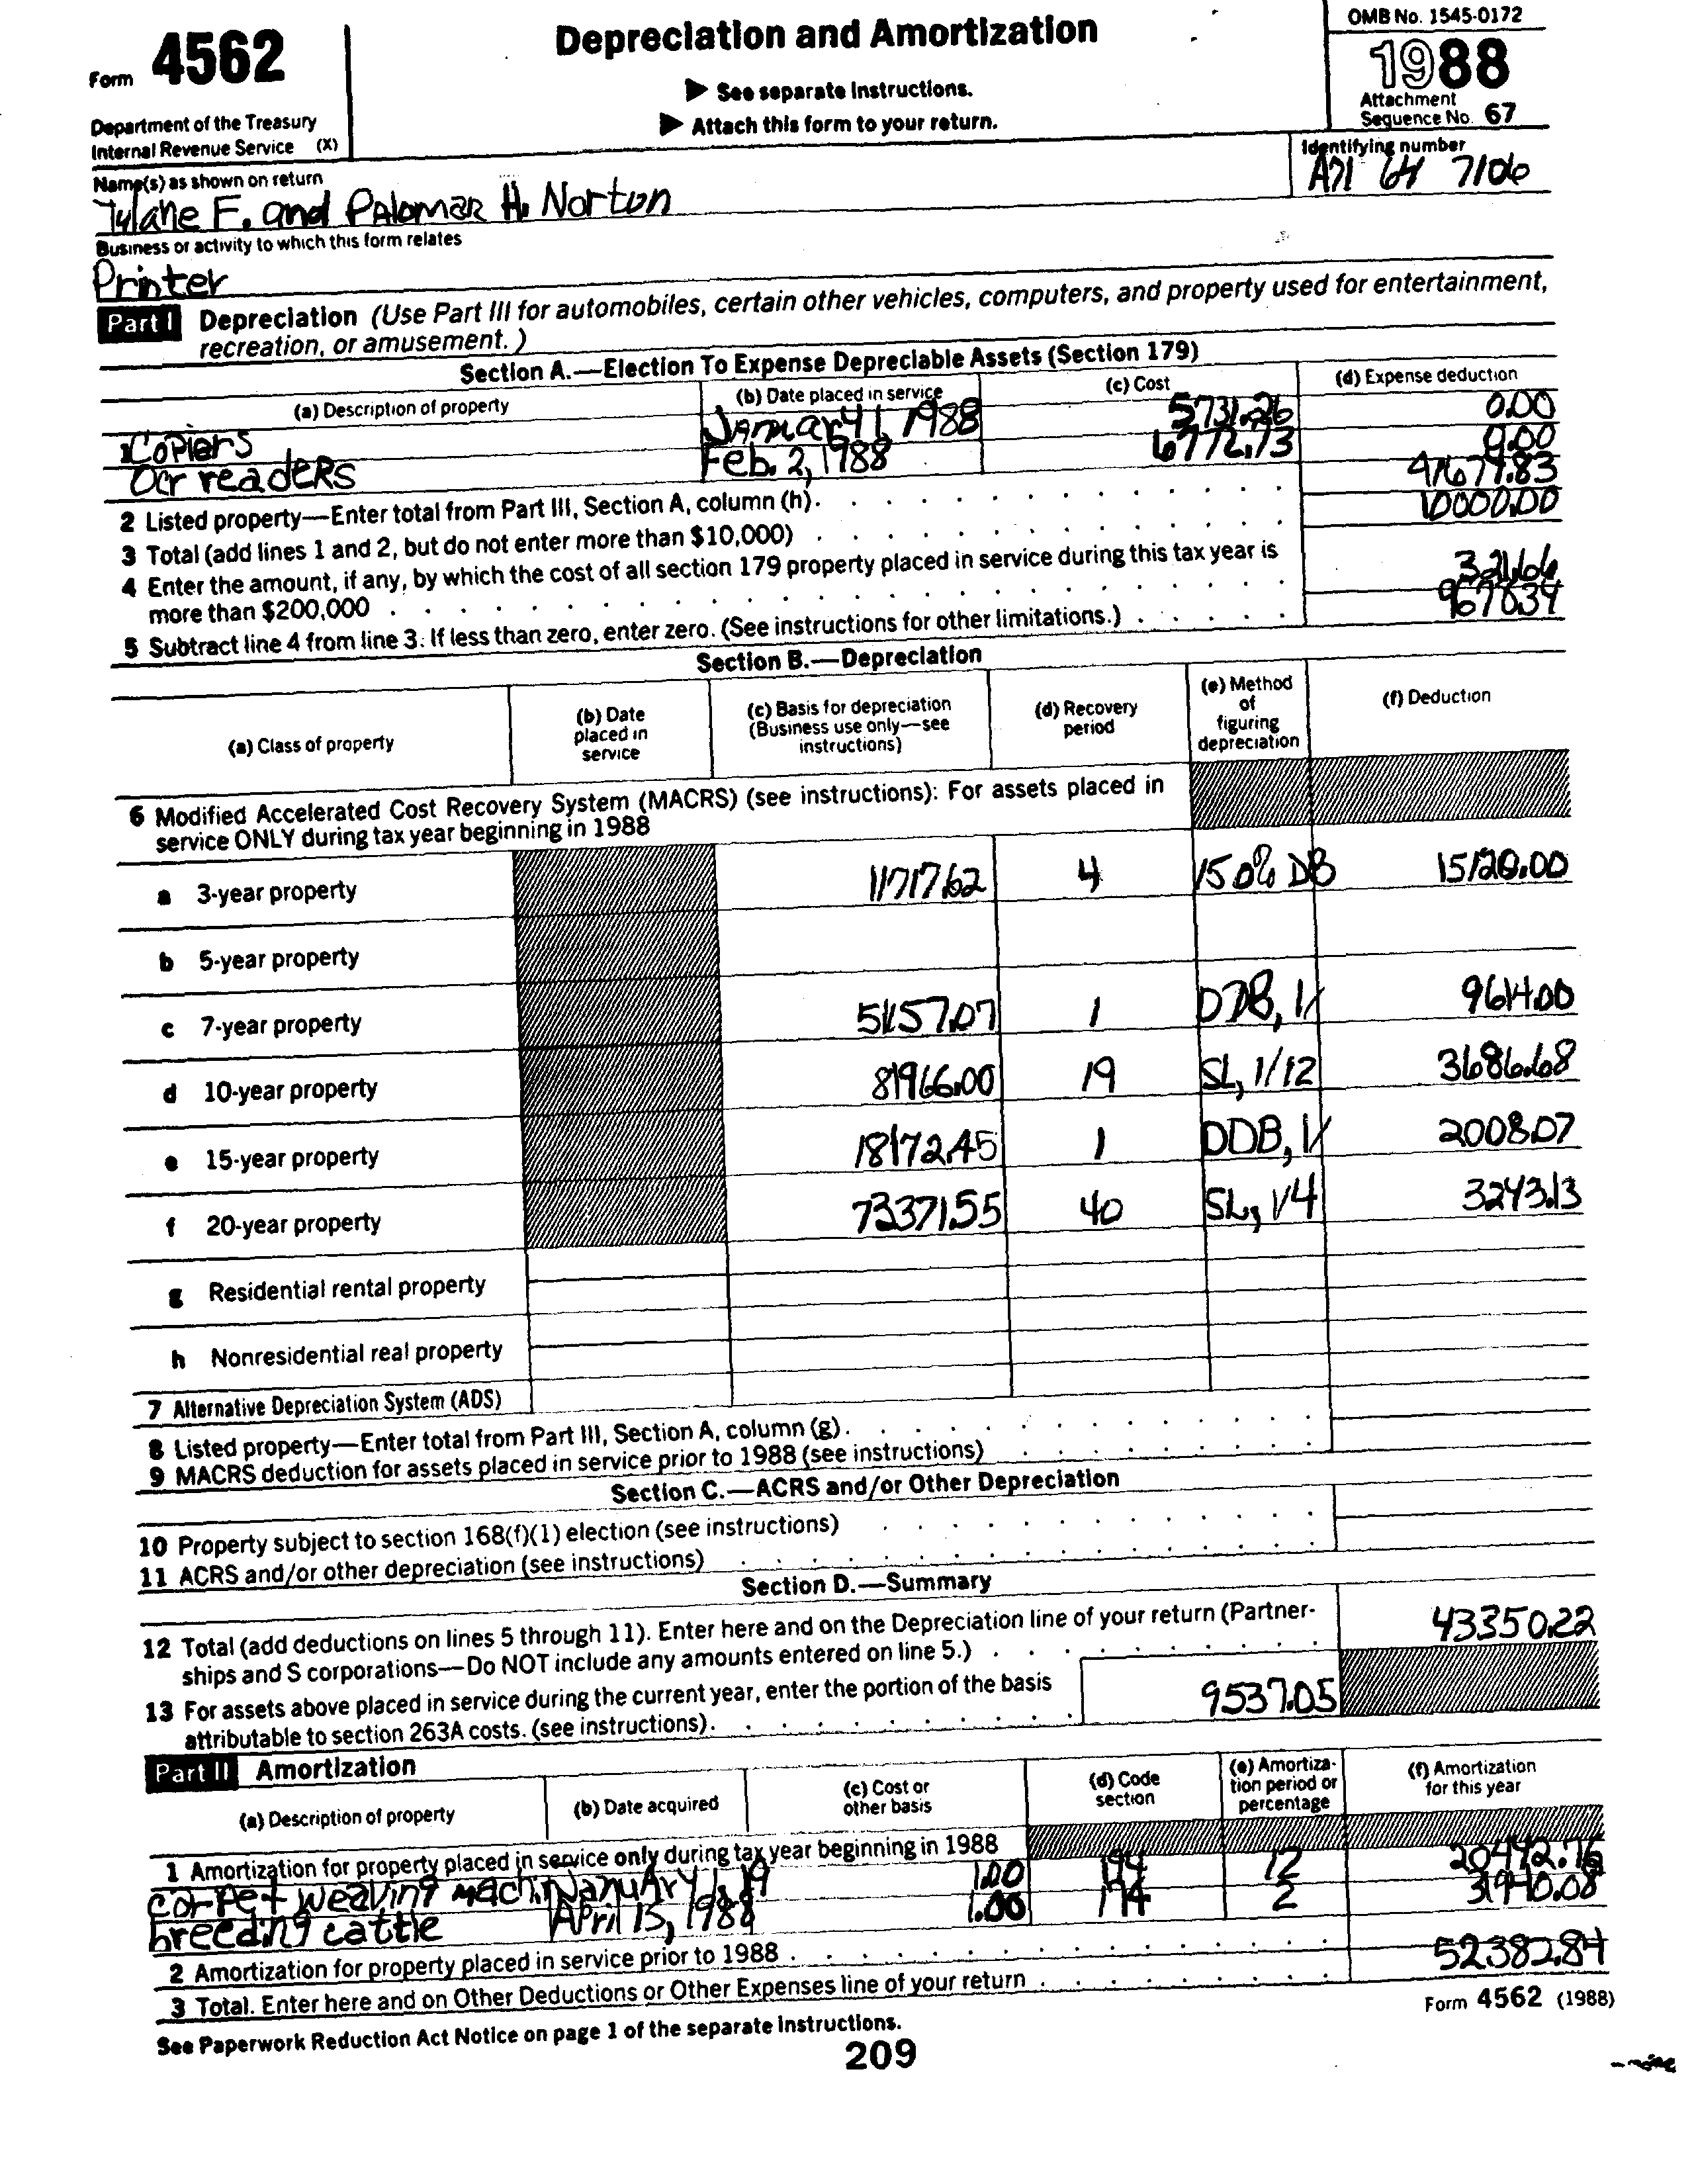 Form 4562
Department of the Treasury
Internal Revenue Service (X)
Depreciation and Amortization
▶ See separate instructions.
▶ Attach this form to your return.
OMB No. 1545-0172
1988
Attachment
Sequence No. 67
Name(s) as shown on return
Tylane F. and Palomar H. Norton
Identifying number
A71 64 7106
Business or activity to which this form relates
Printer
Part I Depreciation (Use Part III for automobiles, certain other vehicles, computers, and property used for entertainment,
recreation, or amusement.)
Section A.—Election To Expense Depreciable Assets (Section 179)
(a) Description of property (b) Date placed in service (c) Cost (d) Expense deduction
1 Copiers January 1, 1988 5731.26 0.00
Ocr readers Feb. 2, 1988 6772.73 0.00
2 Listed property—Enter total from Part III, Section A, column (h). 41679.83
3 Total (add lines 1 and 2, but do not enter more than $10,000) 10000.00
4 Enter the amount, if any, by which the cost of all section 179 property placed in service during this tax year is
more than $200,000 321.66
5 Subtract line 4 from line 3. If less than zero, enter zero. (See instructions for other limitations.) 9678.34
Section B.—Depreciation
(a) Class of property (b) Date placed in service (c) Basis for depreciation (Business use only—see instructions) (d) Recovery period (e) Method of figuring depreciation (f) Deduction
6 Modified Accelerated Cost Recovery System (MACRS) (see instructions): For assets placed in
service ONLY during tax year beginning in 1988
a 3-year property 11717.62 4 150% DB 15120.00
b 5-year property
c 7-year property 51157.07 1 DDB, 1/ 9614.00
d 10-year property 81966.00 19 SL, 1/12 3686.68
e 15-year property 18172.45 1 DDB, 1/ 2008.07
f 20-year property 73371.55 40 SL, 1/4 3243.13
g Residential rental property
h Nonresidential real property
7 Alternative Depreciation System (ADS)
8 Listed property—Enter total from Part III, Section A, column (g).
9 MACRS deduction for assets placed in service prior to 1988 (see instructions)
Section C.—ACRS and/or Other Depreciation
10 Property subject to section 168(f)(1) election (see instructions)
11 ACRS and/or other depreciation (see instructions)
Section D.—Summary
12 Total (add deductions on lines 5 through 11). Enter here and on the Depreciation line of your return (Partner-
ships and S corporations—Do NOT include any amounts entered on line 5.) 43350.22
13 For assets above placed in service during the current year, enter the portion of the basis
attributable to section 263A costs. (see instructions). 9537.05
Part II Amortization
(a) Description of property (b) Date acquired (c) Cost or other basis (d) Code section (e) Amortiza-tion period or percentage (f) Amortization for this year
1 Amortization for property placed in service only during tax year beginning in 1988
carpet weaving machin January 1, 19 1.00 194 12 20442.76
breeding cattle April 15, 1988 1.00 174 2 31940.08
2 Amortization for property placed in service prior to 1988
3 Total. Enter here and on Other Deductions or Other Expenses line of your return 52382.84
See Paperwork Reduction Act Notice on page 1 of the separate instructions.
Form 4562 (1988)
209